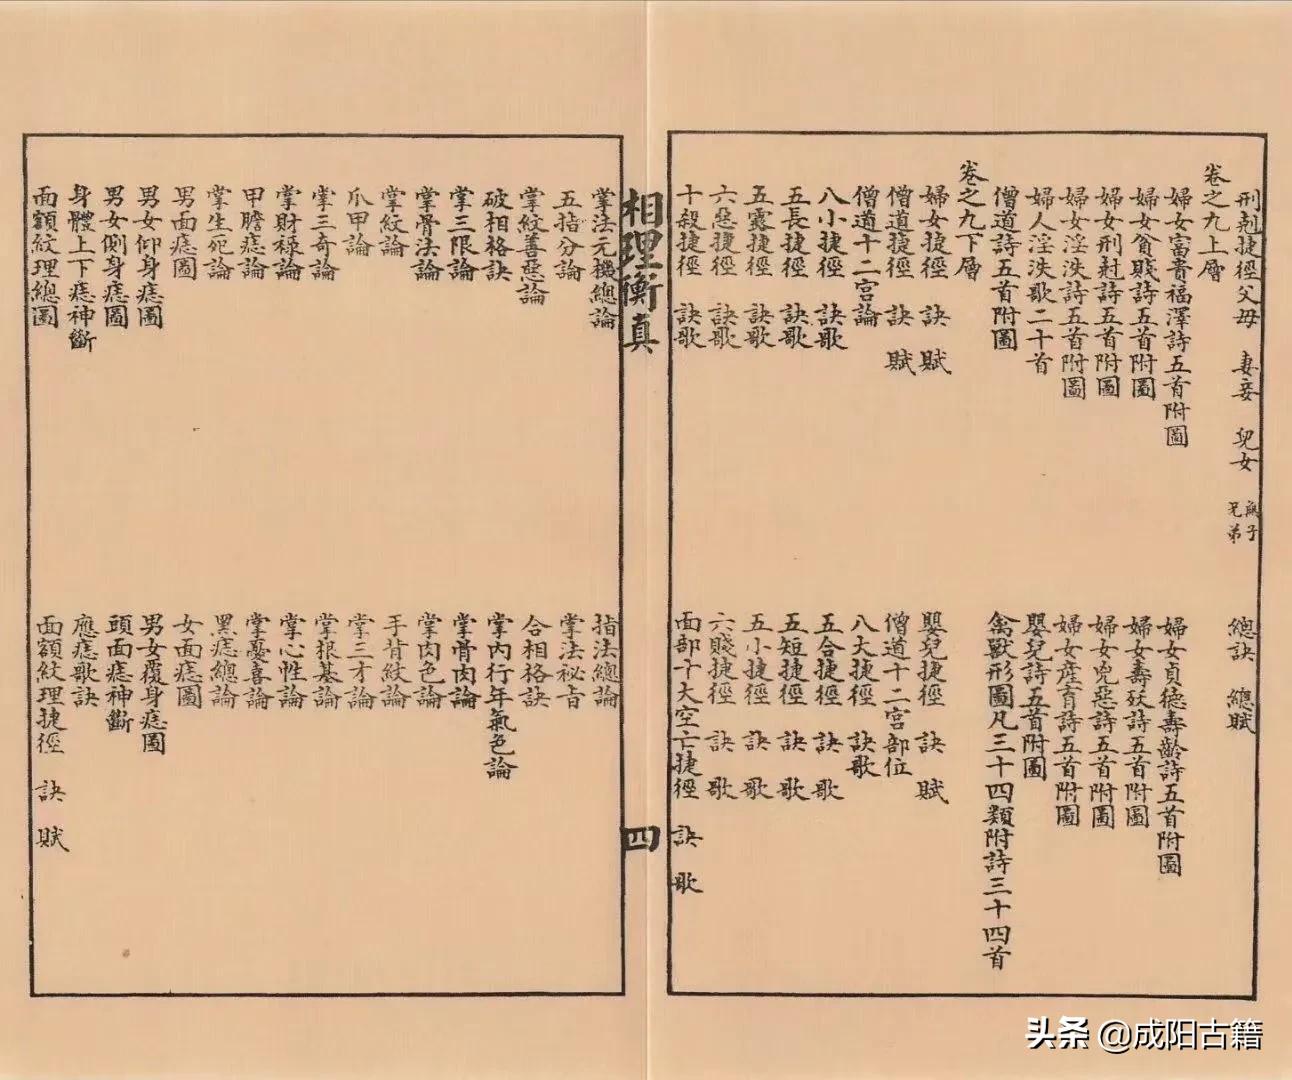 刑剋捷徑父母 妻妾 兒女 無子 兄弟 總訣 總賦
卷之九上層
婦女富貴福澤詩五首附圖 婦女貞德壽齡詩五首附圖
婦女貧賤詩五首附圖 婦女壽殀詩五首附圖
婦女刑尅詩五首附圖 婦女兇惡詩五首附圖
婦女淫泆詩五首附圖 婦女産育詩五首附圖
婦人淫泆歌二十首 嬰兒詩五首附圖
僧道詩五首附圖 禽獸形圖凡三十四類附詩三十四首
卷之九下層
婦女捷徑 訣 賦 嬰兒捷徑 訣 賦
僧道捷徑 訣 賦 僧道十二宮部位
僧道十二宮論 八大捷徑 訣歌
八小捷徑 訣歌 五合捷徑 訣 歌
五長捷徑 訣歌 五短捷徑 訣 歌
五露捷徑 訣歌 五小捷徑 訣 歌
六惡捷徑 訣歌 六賤捷徑 訣 歌
十殺捷徑 訣歌 面部十大空亡捷徑 訣 歌
相理衡真 四
掌法元機總論 指法總論
五指分論 掌法祕旨
掌紋善惡論 合相格訣
破相格訣 掌內行年氣色論
掌三限論 掌骨肉論
掌骨法論 掌肉色論
掌紋論 手背紋論
爪甲論 掌三才論
掌三奇論 掌根基論
掌財祿論 掌心性論
甲膽痣論 掌憂喜論
掌生死論 黑痣總論
男面痣圖 女面痣圖
男女仰身痣圖 男女覆身痣圖
男女側身痣圖 頭面痣神斷
身體上下痣神斷 應痣歌訣
面額紋理總圖 面額紋理捷徑 訣 賦
头条 @成阳古籍